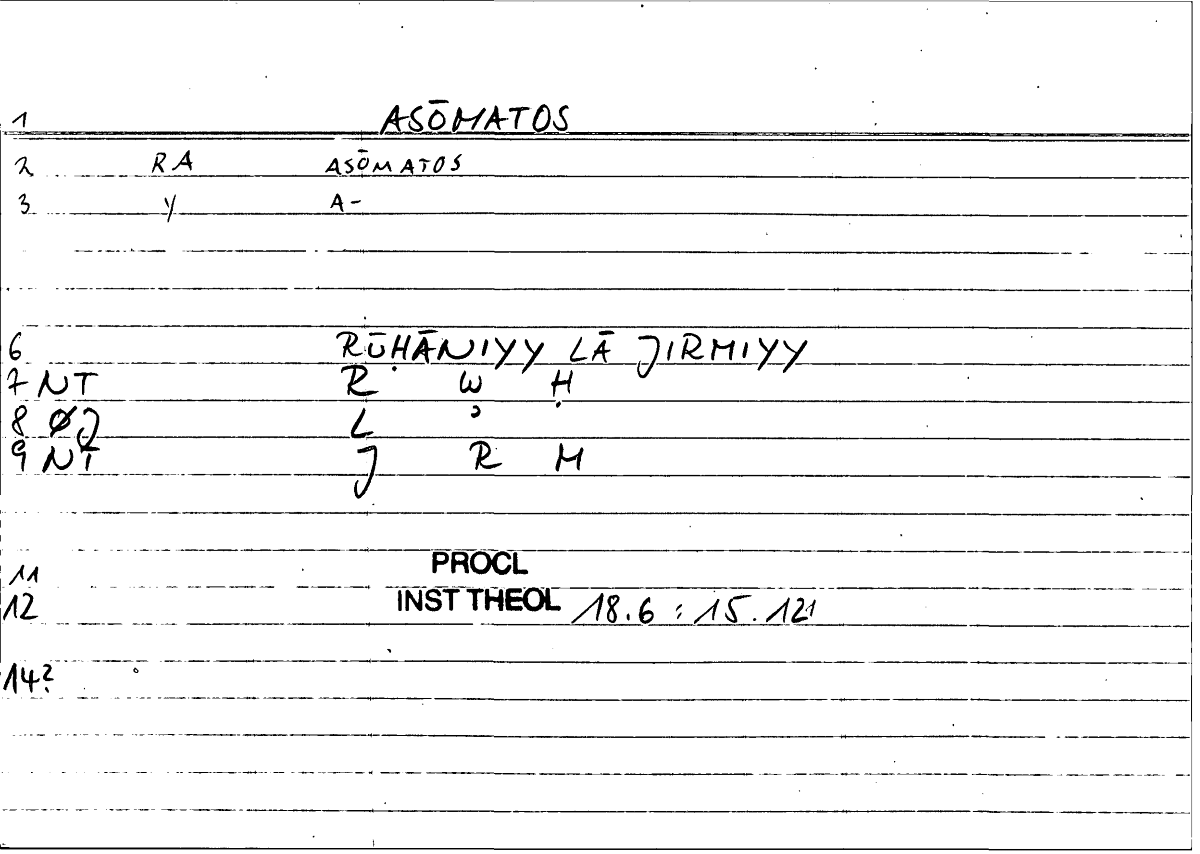 1 ASŌMATOS
2 RA ASŌMATOS
3 Y A-
6 RŪḤĀNIYY LĀ JIRMIYY
7 NT R W Ḥ
8 ØJ L ʾ
9 NT J R M
11 PROCL
12 INST THEOL 18.6 : 15.121
14?